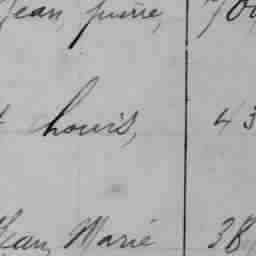 Jean, pierre, 70
Louis, 43
Jean Marie 38